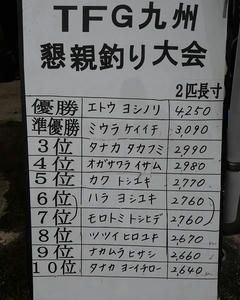 TFG九州
懇親釣り大会
2匹長寸
優勝 エトウ ヨシノリ 4,250
準優勝 ミウラ ケイイチ 3,090
3位 タナカ タカフミ 2,990
4位 オガサワラ イサム 2,980
5位 カワ トシユキ 2,770
6位 ハラ ヨシユキ 2,760
7位 モロトミ トシヒデ 2,760
8位 ツツイ ヒロユキ 2,670
9位 ナカムラ ヒサシ 2,660
10位 タナカ ヨーイチロー 2,640